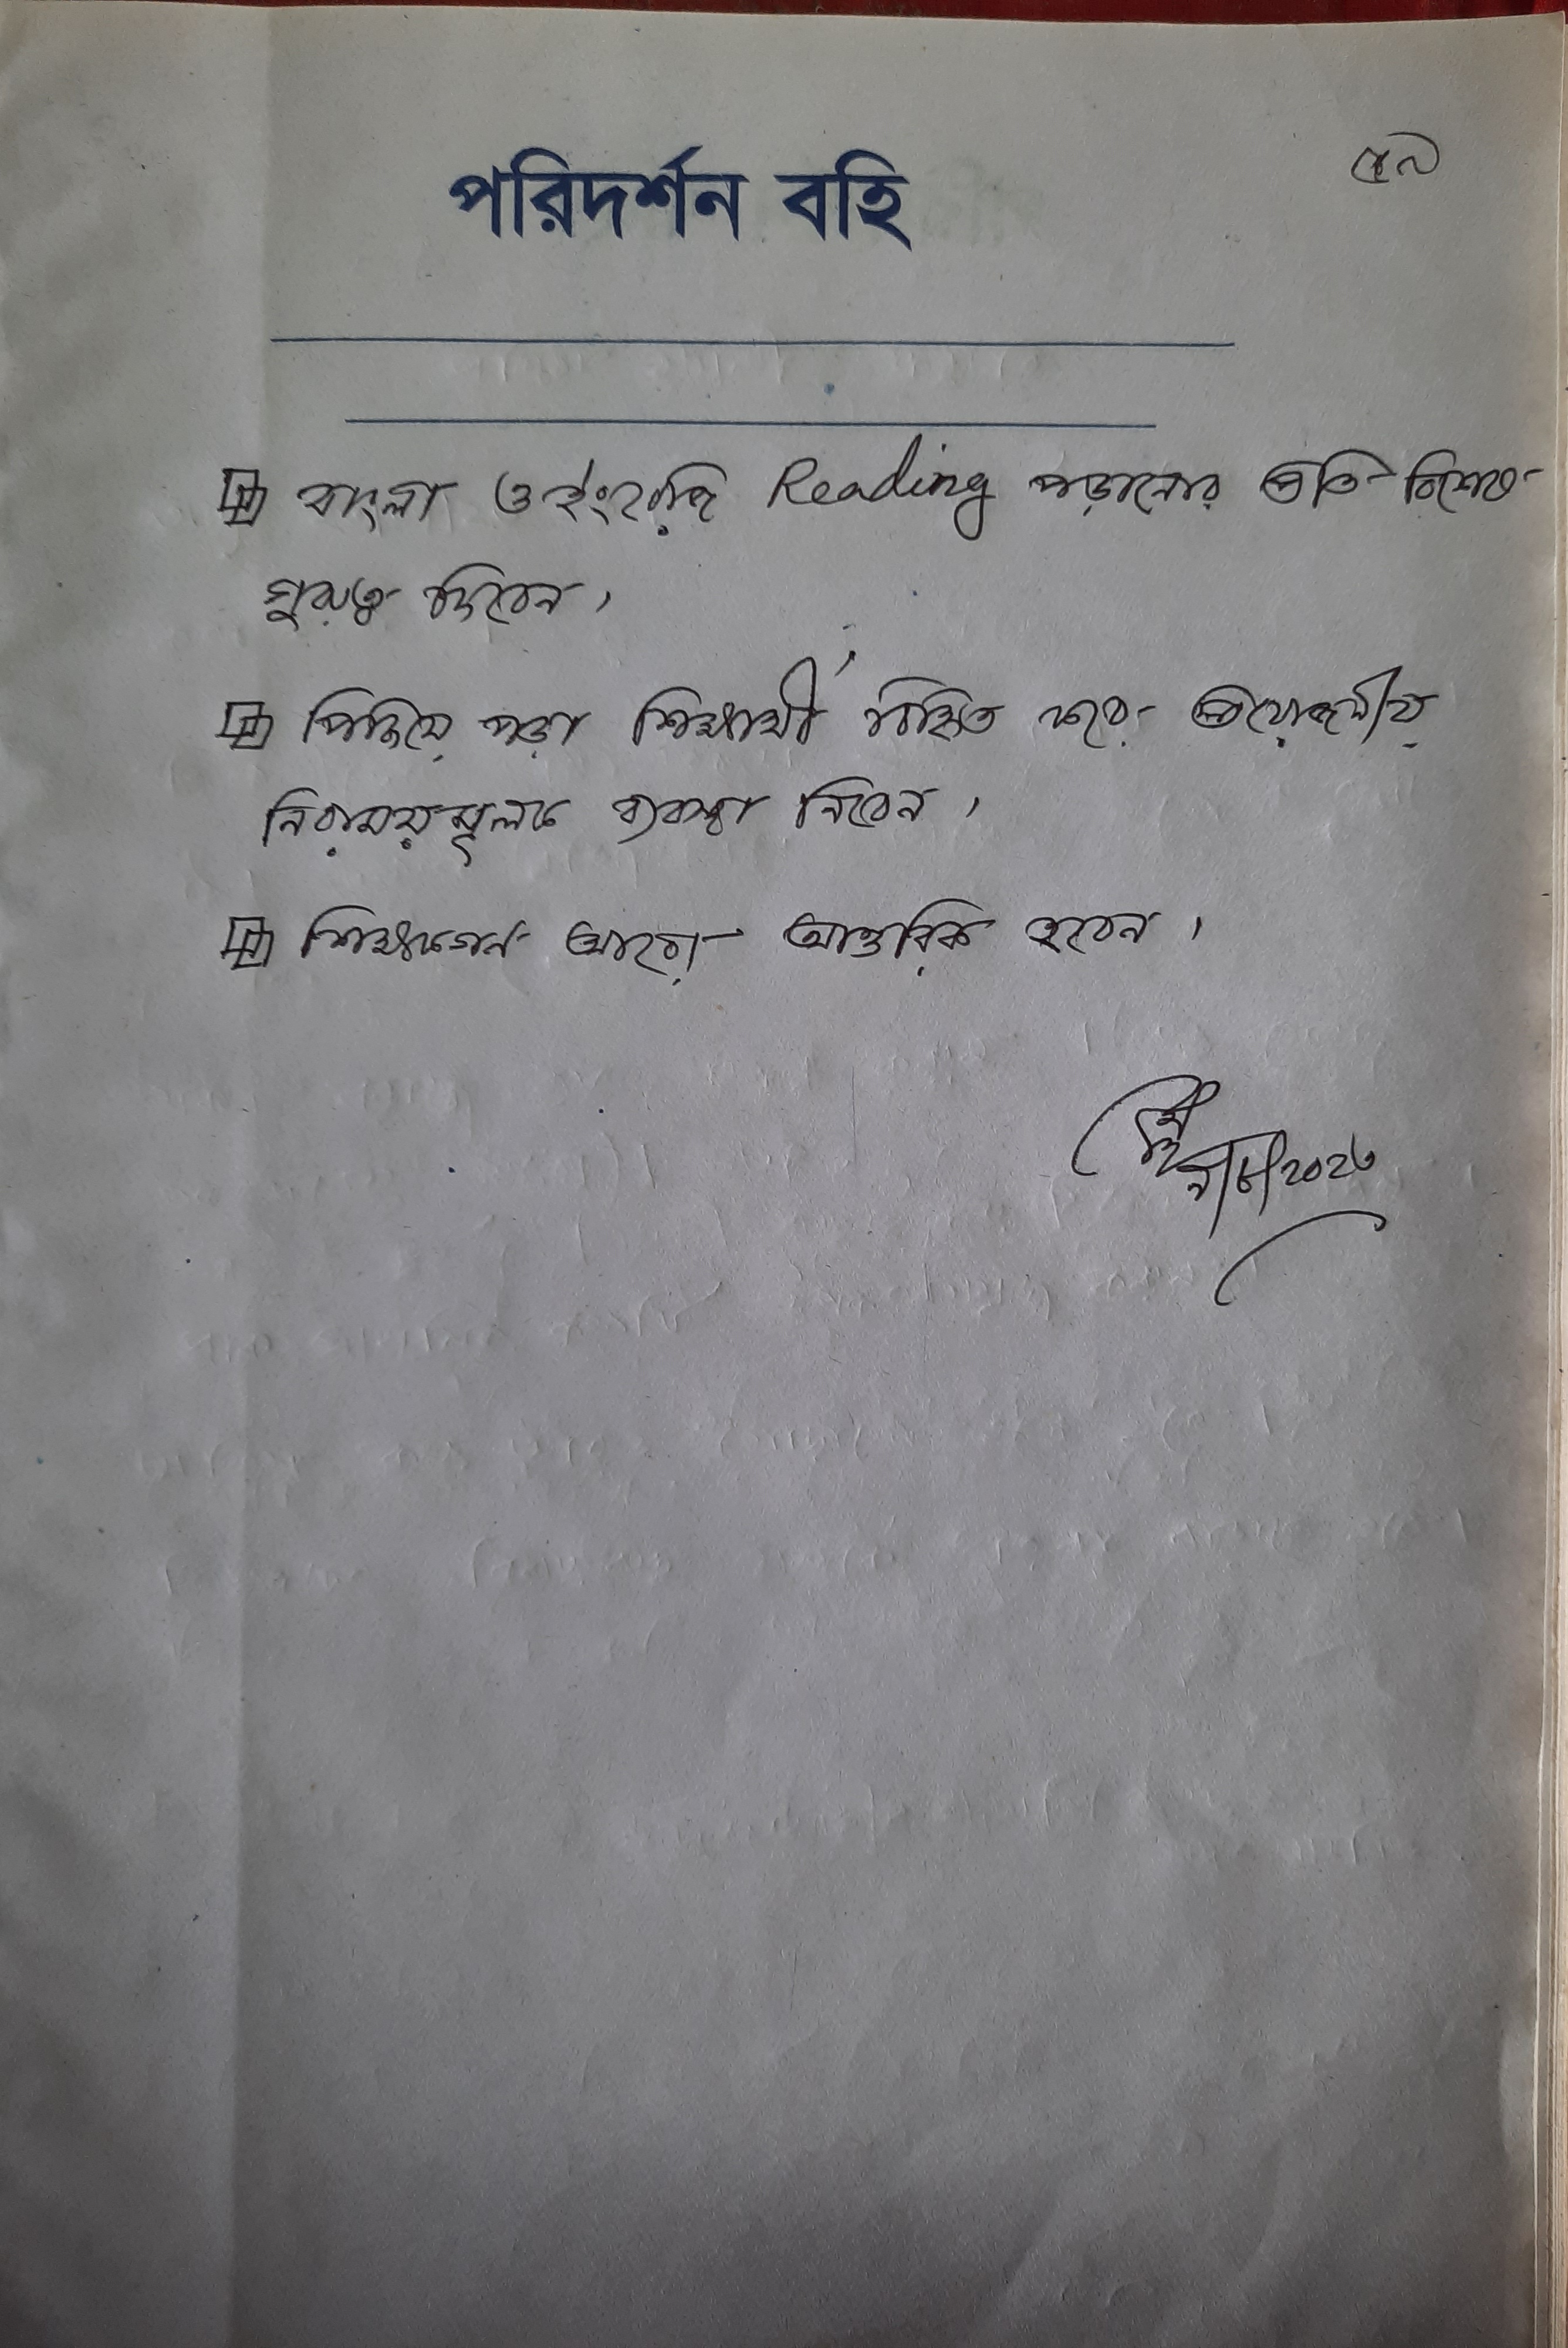 পরিদর্শন বহি
বাংলা ও ইংরেজি Reading পড়ানোর প্রতি বিশেষ
গুরুত্ব দিবেন।
পিছিয়ে পড়া শিক্ষার্থী চিহ্নিত করে প্রয়োজনীয়
নিরাময়মূলক ব্যবস্থা নিবেন।
শিক্ষকগন আরো আন্তরিক হবেন।